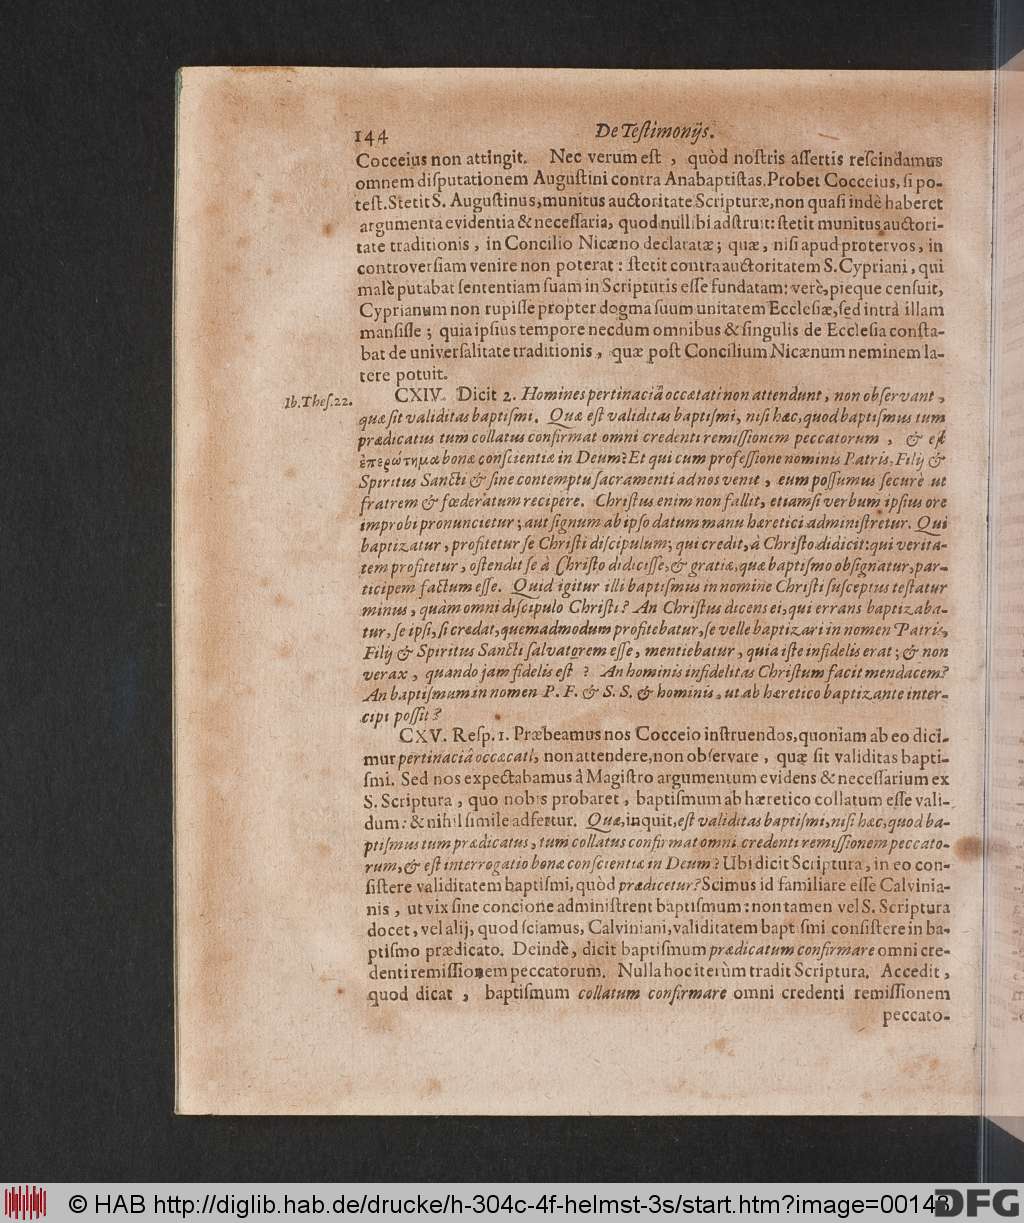 144 De Teſtimonijs.
Cocceius non attingit. Nec verum eſt , quòd noſtris aſſertis reſcindamus
omnem diſputationem Auguſtini contra Anabaptiſtas. Probet Cocceius, ſi po-
teſt. Stetit S. Auguſtinus, munitus auctoritate Scripturæ, non quaſi indè haberet
argumenta evidentia & neceſſaria, quod nullibi adſtruit: ſtetit munitus auctori-
tate traditionis , in Concilio Nicæno declaratæ; quæ , niſi apud protervos , in
controverſiam venire non poterat : ſtetit contra auctoritatem S. Cypriani , qui
malè putabat ſententiam ſuam in Scripturis eſſe fundatam: verè, pieque cenſuit,
Cyprianum non rupiſſe propter dogma ſuum unitatem Eccleſiæ, ſed intrà illam
manſiſſe ; quia ipſius tempore necdum omnibus & ſingulis de Eccleſia conſta-
bat de univerſalitate traditionis , quæ poſt Concilium Nicænum neminem la-
tere potuit.
Ib. Theſ. 22. CXIV. Dicit 2. Homines pertinaciâ occætati non attendunt , non obſervant ,
quæ ſit validitas baptiſmi. Quæ eſt validitas baptiſmi, niſi hæc, quod baptiſmus tum
prædicatus tum collatus confirmat omni credenti remiſſionem peccatorum , & eſt
ἐπερώτημα bonæ conſcientiæ in Deum? Et qui cum profeſſione nominis Patris, Filij &
Spiritus Sancti & ſine contemptu ſacramenti ad nos venit , eum poſſumus ſecurè ut
fratrem & fœderatum recipere. Chriſtus enim non fallit, etiamſi verbum ipſius ore
improbi pronuncietur ; aut ſignum ab ipſo datum manu hæretici adminiſtretur. Qui
baptizatur, profitetur ſe Chriſti diſcipulum; qui credit, à Chriſto didicit: qui verita-
tem profitetur , oſtendit ſe à Chriſto didiciſſe, & gratiæ, quæ baptiſmo obſignatur, par-
ticipem factum eſſe. Quid igitur illi baptiſmus in nomine Chriſti ſuſceptus teſtatur
minus , quàm omni diſcipulo Chriſti? An Chriſtus dicens ei, qui errans baptizaba-
tur, ſe ipſi, ſi credat, quemadmodum profitebatur, ſe velle baptizari in nomen Patris,
Filij & Spiritus Sancti ſalvatorem eſſe , mentiebatur , quia iſte infidelis erat ; & non
verax , quando jam fidelis eſt ? An hominis infidelitas Chriſtum facit mendacem?
An baptiſmum in nomen P. F. & S. S. & hominis, ut ab hæretico baptizante inter-
cipi poſſit?
CXV. Reſp. 1. Præbeamus nos Cocceio inſtruendos, quoniam ab eo dici-
mur pertinaciâ occæcati, non attendere, non obſervare , quæ ſit validitas bapti-
ſmi. Sed nos expectabamus à Magiſtro argumentum evidens & neceſſarium ex
S. Scriptura , quo nobis probaret , baptiſmum ab hæretico collatum eſſe vali-
dum: & nihil ſimile adfertur. Quæ, inquit, eſt validitas baptiſmi, niſi hæc, quod ba-
ptiſmus tum prædicatus , tum collatus confirmat omni credenti remiſſionem peccato-
rum, & eſt interrogatio bonæ conſcientiæ in Deum? Ubi dicit Scriptura, in eo con-
ſiſtere validitatem baptiſmi, quòd prædicetur? Scimus id familiare eſſe Calvinia-
nis , ut vix ſine concione adminiſtrent baptiſmum: non tamen vel S. Scriptura
docet, vel alij, quod ſciamus, Calviniani, validitatem baptiſmi conſiſtere in ba-
ptiſmo prædicato. Deindè, dicit baptiſmum prædicatum confirmare omni cre-
denti remiſſionem peccatorum. Nulla hoc iterùm tradit Scriptura. Accedit ,
quod dicat , baptiſmum collatum confirmare omni credenti remiſſionem
peccato-
© HAB http://diglib.hab.de/drucke/h-304c-4f-helmst-3s/start.htm?image=00148
DFG